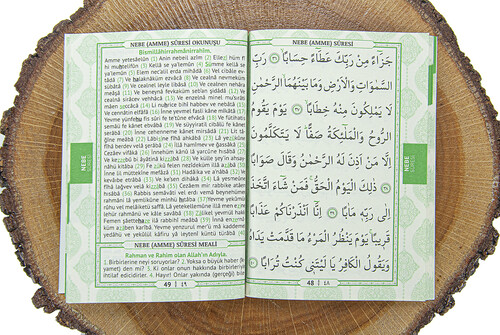 NEBE (AMME) SÛRESİ
جَزَٓاءً مِنْ رَبِّكَ عَطَٓاءً حِسَابًاۙ ﴿٣٦﴾ رَبِّ
السَّمٰوَاتِ وَالْاَرْضِ وَمَا بَيْنَهُمَا الرَّحْمٰنِ
لَا يَمْلِكُونَ مِنْهُ خِطَابًاۚ ﴿٣٧﴾ يَوْمَ يَقُومُ
الرُّوحُ وَالْمَلٰٓئِكَةُ صَفًّاۜ لَا يَتَكَلَّمُونَ
اِلَّا مَنْ اَذِنَ لَهُ الرَّحْمٰنُ وَقَالَ صَوَابًا
﴿٣٨﴾ ذٰلِكَ الْيَوْمُ الْحَقُّۚ فَمَنْ شَٓاءَ اتَّخَذَ
اِلٰى رَبِّه۪ مَاٰبًا ﴿٣٩﴾ اِنَّٓا اَنْذَرْنَاكُمْ عَذَابًا
قَر۪يبًاۚ يَوْمَ يَنْظُرُ الْمَرْءُ مَا قَدَّمَتْ يَدَاهُ
وَيَقُولُ الْكَافِرُ يَا لَيْتَن۪ي كُنْتُ تُرَابًا ﴿٤٠﴾
48 ٤٨
NEBE
NEBE (AMME) SÛRESİ OKUNUŞU
Bismillâhirrahmânirrahîm.
Amme yetesâelûn (1) Anin nebeil azîm (2) Ellezî hüm fî
hi muhtelifûn (3) Kellâ se ya'lemûn (4) Sümme kellâ se
ya'lemûn (5) Elem nec'alil erda mihâdâ (6) Vel cibâle ev
tâdâ (7) Ve halaknâküm ezvâcâ (8) Ve cealnâ nevmeküm
sübâtâ (9) Ve cealnel leyle libâsâ (10) Ve cealnen nehâra
meâşâ (11) Ve beneynâ fevkaküm seb'an şidâdâ (12) Ve
cealnâ sirâcev vehhâcâ (13) Ve enzelnâ minel mu'sırâti
mâen seccâcâ (14) Li nuhrice bihî habbev ve nebâtâ (15)
Ve cennâtin elfâfâ (16) İnne yevmel fasli kâne mîkâtâ (17)
Yevme yünfehu fis sûri fe te'tûne efvâcâ (18) Ve fütihatis
semâü fe kânet ebvâbâ (19) Ve süyyiratil cibâlü fe kânet
serâbâ (20) İnne cehenneme kânet mirsâdâ (21) Lit tâ
ğîne meâbâ (22) Lâbisîne fîhâ ahkâbâ (23) Lâ yezûkûne
fîhâ berdev velâ şerâbâ (24) İllâ hamîmev ve ğassâkâ (25)
Cezâev vifâkâ (26) İnnehüm kânû lâ yercûne hısâbâ (27)
Ve kezzebû bi âyâtinâ kizzâbâ (28) Ve külle şey'in ahsay
nâhü kitâbâ (29) Fe zûkû felen nezîdeküm illâ azâbâ (30)
İnne lil müttekîne mefâzâ (31) Hadâika ve a'nâbâ (32) Ve
kevâibe etrâbâ (33) Ve ke'sen dihâkâ (34) Lâ yesmeûne
fîhâ lağvev velâ kizzâbâ (35) Cezâem mir rabbike atâen
hısâbâ (36) Rabbis semâvâti vel erdı vemâ beynehümer
rahmâni lâ yemlikûne minhü hıtâbâ (37) Yevme yekûmür
rûhu vel melâiketü saffâ. Lâ yetekellemûne illâ men ezine
lehür rahmânü ve kâle savâbâ (38) Zâlikel yevmül hakk.
Femen şâettehaze ilâ rabbihî meâbâ (39) İnnâ enzernâ
küm azâben karîbâ. Yevme yenzurul mer'ü mâ kaddemet
yedâhü ve yekûlül kâfiru yâ leytenî küntü türâbâ (40)
NEBE (AMME) SÛRESİ MEALİ
Rahman ve Rahîm olan Allah'ın Adıyla.
49 ٤٩
NEBE